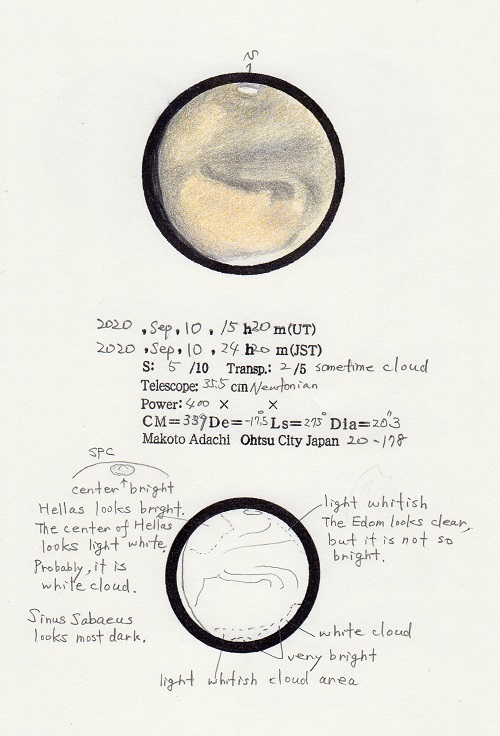 S
2020 , Sep , 10 , 15 h 20 m (UT)
2020 , Sep , 10 , 24 h 20 m (JST)
S: 5 /10 Transp.: 2 /5 sometime cloud
Telescope: 35.5 cm Newtonian
Power: 400 × ×
CM= 339° De= -17.5° Ls= 275° Dia= 20"3
Makoto Adachi Ohtsu City Japan 20-178
SPC
center ↑ bright
Hellas looks bright.
The center of Hellas
looks light white.
Probably, it is
white cloud.
Sinus Sabaeus
looks most dark.
light whitish
The Edom looks clear,
but it is not so
bright.
white cloud
very bright
light whitish cloud area